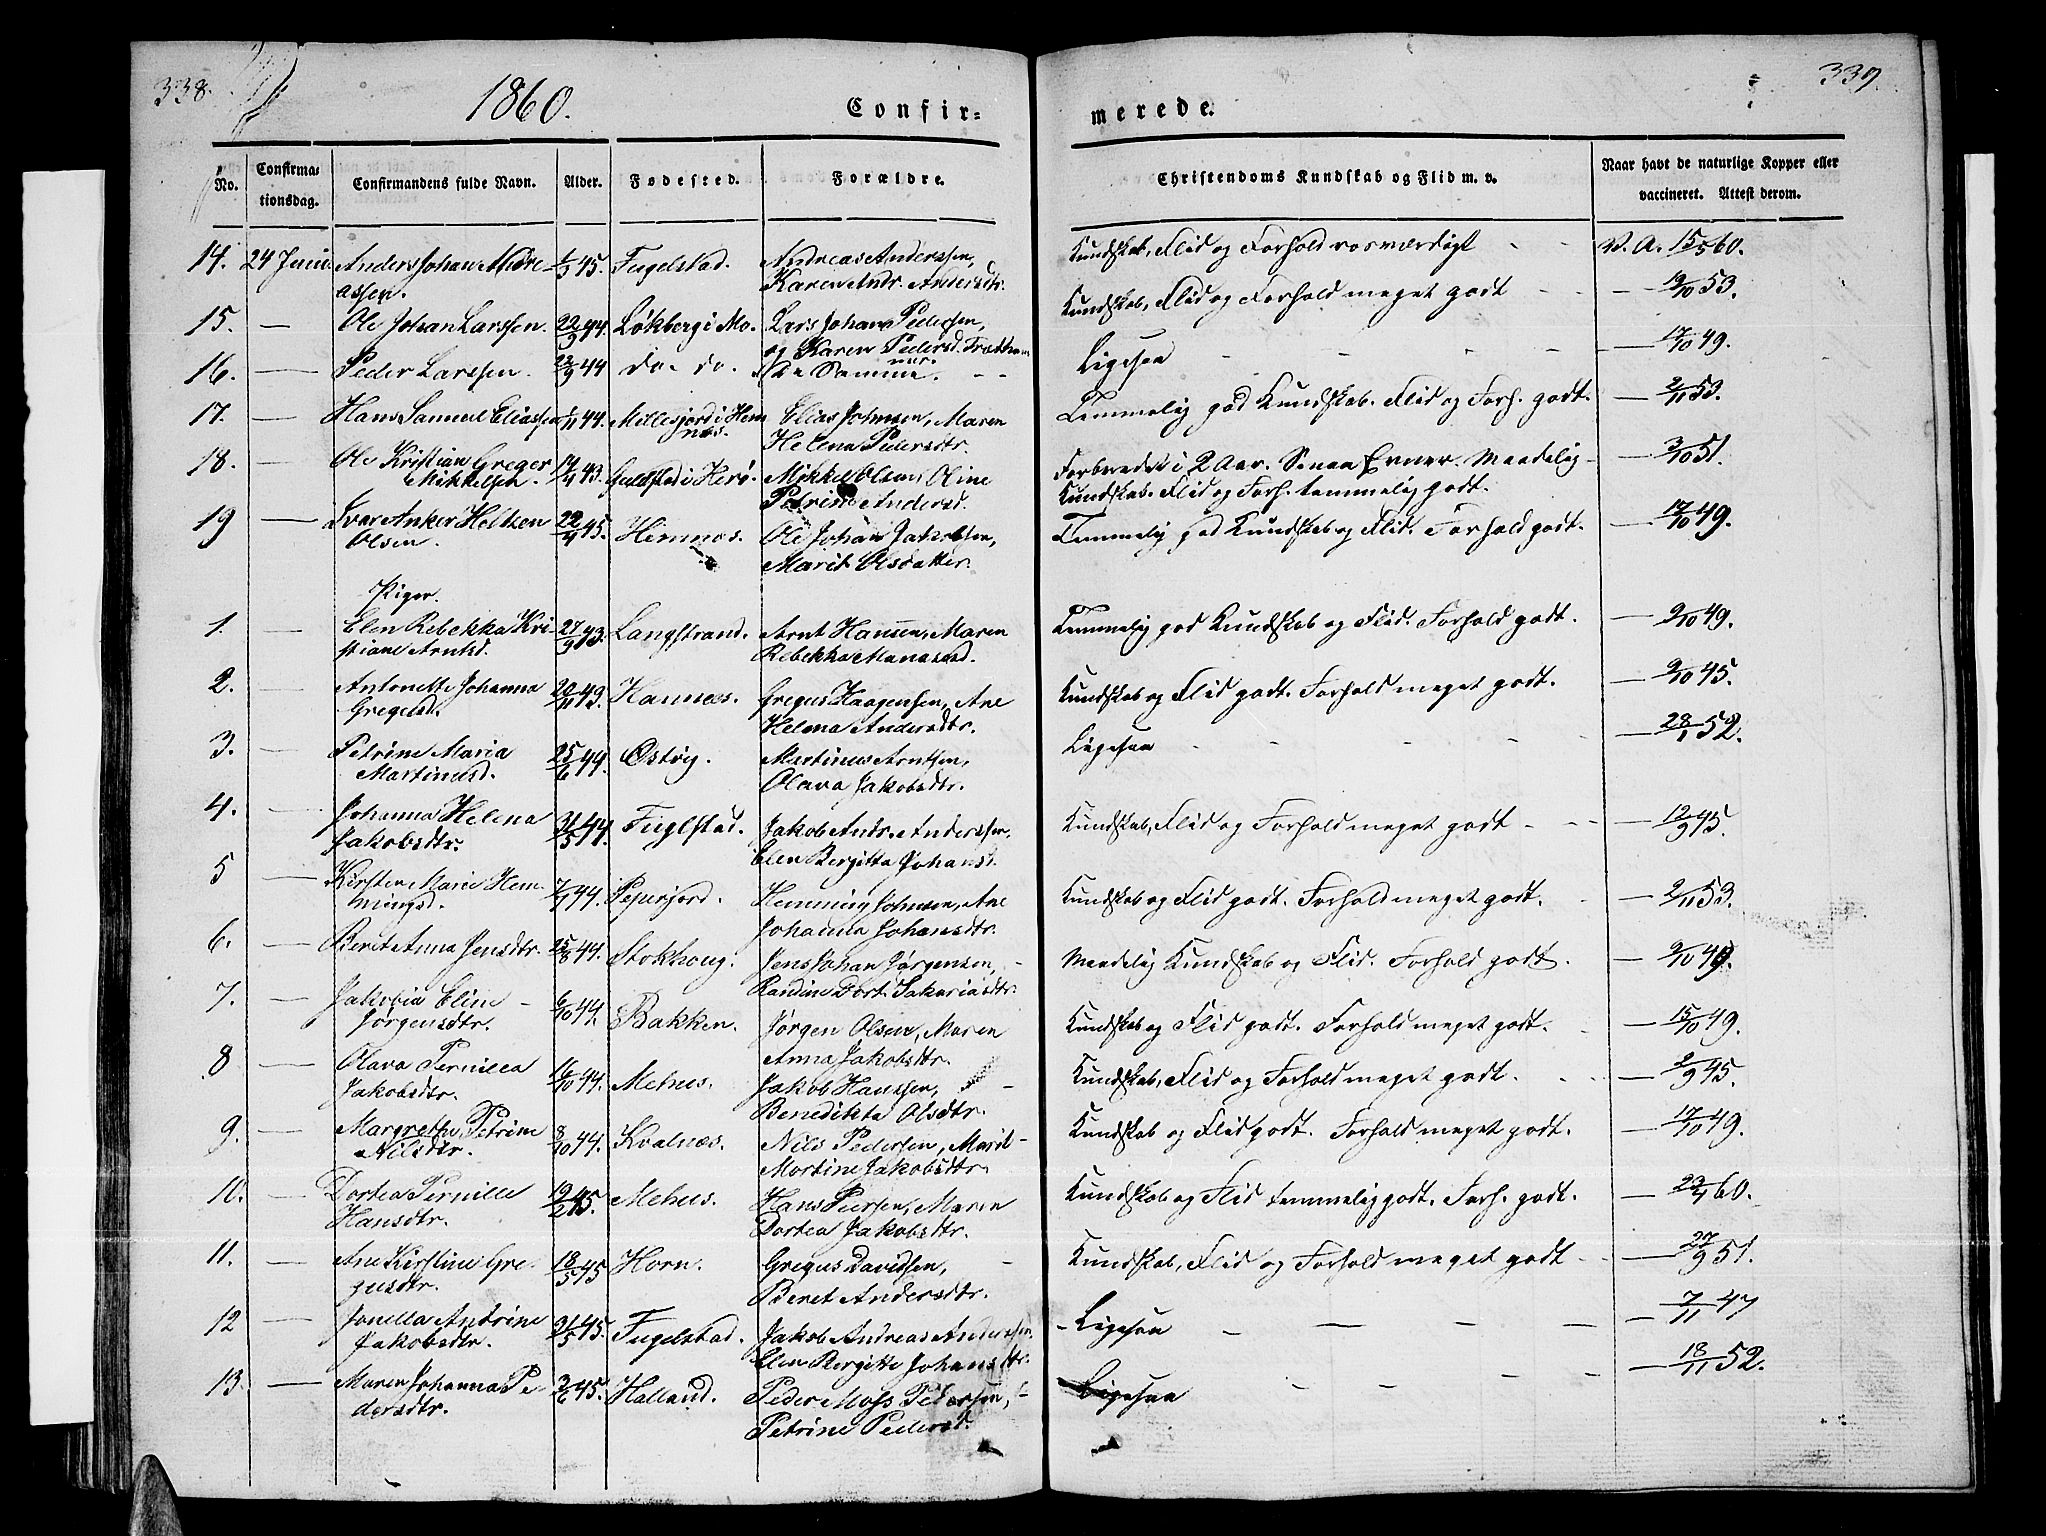 338.
1860.
Confir=
merede.
339.
No.
Confirma=
tionsdag.
Confirmandens fulde Navn.
Alder.
Fødested.
Forældre.
Christendoms Kundskab og Flid m. v.
Naar havt de naturlige Kopper eller
vaccineret. Attest derom.
14. 24 Juni Anders Johan Andre- 45. Fugelstad. Andreas Anderssen, Kundskab, Flid og Forhold rosværdigt - - V. A. 15/5 60.
assen. Karen Andr. Andersdtr.
15. — Ole Johan Larssen. 22/9 44. Løkberg i Mo. Lars Johan Pedersen, Kundskab, Flid og Forhold meget godt - - — 19/10 53.
og Karen Pedersd.
16. — Peder Larssen. 22/9 44 do. do. De Samme. - - Ligesaa - - - - — 17/10 49.
17. — Hans Samuel Eliassen 1/11 44. Millesjord i Hem Elias Johnsen, Maren Temmelig god Kundskab. Flid og Forh. godt. — 2/11 53.
nes. Helena Pedersdtr.
18. — Ole Kristian Greger 14/4 43. i Herø. Mikkel Olsen, Oline Forberedet i 2 Aar. Svage Evner. Maadelig — 3/10 51.
Mikkelsen. Petrine Andersd. Kundskab. Flid og Forh. temmelig godt.
19 — Ivar Anker Heltzen 22/4 45. Hemnes. Ole Johan Jakobsen, Temmelig god Kundskab og Flid. Forhold godt. — 17/10 49.
Olsen. Marit Olsdatter.
Piger.
1. — Elen Rebekka Kri- 27/9 43. Langstrand. Arnt Hansen, Maren Temmelig god Kundskab og Flid. Forhold godt. — 2/10 49.
stiane Arntsd. Rebekka Manassed.
2. — Antonette Johanna 20/11 43. Hannæs. Gregus Haagensen, Ane Kundskab og Flid godt. Forhold meget godt. — 9/10 45.
Gregusd. Helena Andersdtr.
3. — Petrine Maria 25/6 44. Østvig. Martinus Arntsen, Ligesaa - - - - — 28/1 52.
Martinusd. Olava Jakobsdtr.
4. — Johanna Helena 31/5 44. Fuglstad. Jakob Andr. Anderssen, Kundskab, Flid og Forhold meget godt - - — 12/9 45.
Jakobsdtr. Elen Bergitta Johansd.
5 — Kirsten Marie Hem- 7/7 44. Peperfjord. Henning Johnsen, Ane Kundskab og Flid godt. Forhold meget godt. - — 2/11 53.
mingsd. Johanna Johansdtr.
6. — Beret Anna Jensdtr. 25/8 44. Stokhoug. Jens Johan Jørgensen, - Maadelig Kundskab og Flid. Forhold godt. — 9/10 49.
Randine Dort. Sakariasdtr.
7. — Jakobia Eline - 6/10 44. Bakken. Jørgen Olsen, Maren Kundskab og Flid godt. Forhold meget godt. - — 15/10 49.
Jørgensdtr. Anna Jakobsdtr.
8 — Olava Pernilla 16/10 44. Mehus. Jakob Hanssen, - Kundskab, Flid og Forhold meget godt. - - — 2/9 45.
Jakobsdtr. Benedikta Olsdtr.
9. — Margrethe Petrine 8/10 44. Kvalnæs. Nils Pedersen, Marit Kundskab og Flid godt. Forhold meget godt. — 17/10 49.
Nilsdtr. Mortine Jakobsdtr.
10. — Dortea Pernille 19/2 45. Mehus. Hans Peersen, Maren Kundskab og Flid temmelig godt. Forh. godt. — 23/4 60.
Hansdtr. Dortea Jakobsdtr.
11. — Ane Kirstine Gre- 18/5 45 Horn. Gregus Davidsen, - Kundskab, Flid og Forhold meget godt - — 27/9 51.
gusdtr. Beret Andersdtr.
12 — Jonella Antrine 31/5 45. Fugelstad. Jakob Andreas Anderssen, - Ligesaa - - - - — 7/11 47
Jakobsdtr. Elen Bergitte Johansdtr.
13. — Maren Johanna Pe- 3/6 45. Halland. Peder Moss Pedersen, - Ligesaa - - - - — 18/11 52.
dersdtr. Petrine Pedersd.